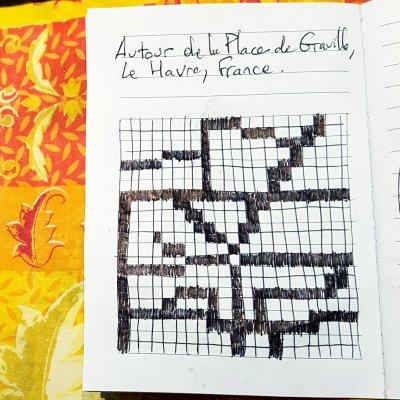 Autour de la Place de Graville,
Le Havre, France.